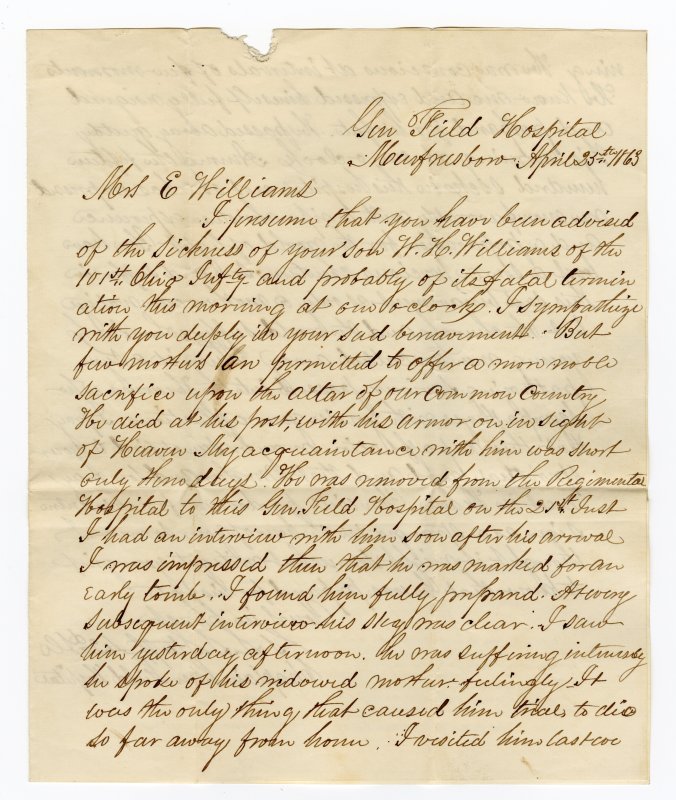 Gen Field Hospital
Murfresboro April 25th 1863
Mrs E Williams
I presume that you have been advised
of the sickness of your son W. H. Williams of the
101st Ohio Infty and probably of its fatal termin
ation this morning at one o clock. I sympathize
with you deeply in your sad bereavement. But
few mothers are permitted to offer a more noble
sacrifice upon the altar of our common country
He died at his post, with his armor on in sight
of Heaven My acquaintance with him was short
only three days. He was removed from the Regimental
Hospital to this Gen. Field Hospital on the 21st Inst
I had an interview with him soon after his arrival
I was impressed then that he was marked for an
early tomb. I found him fully prepared. At every
subsequent interview his sky was clear. I saw
him yesterday afternoon. he was suffering intensely
he spoke of his widowed mother feelingly It
was the only thing that caused him trial, to die
so far away from home. I visited him last eve